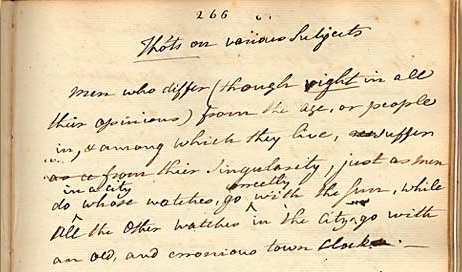 266
Tho'ts on various Subjects
Men who differ (though right in all
their opinions) from the age, or people
in, & among which they live, suffer
from their Singularity, just as men
in a city correctly
do whose watches, go with the Sun, while
All the other watches in the City, go with
an old, and erronious town Clock. —